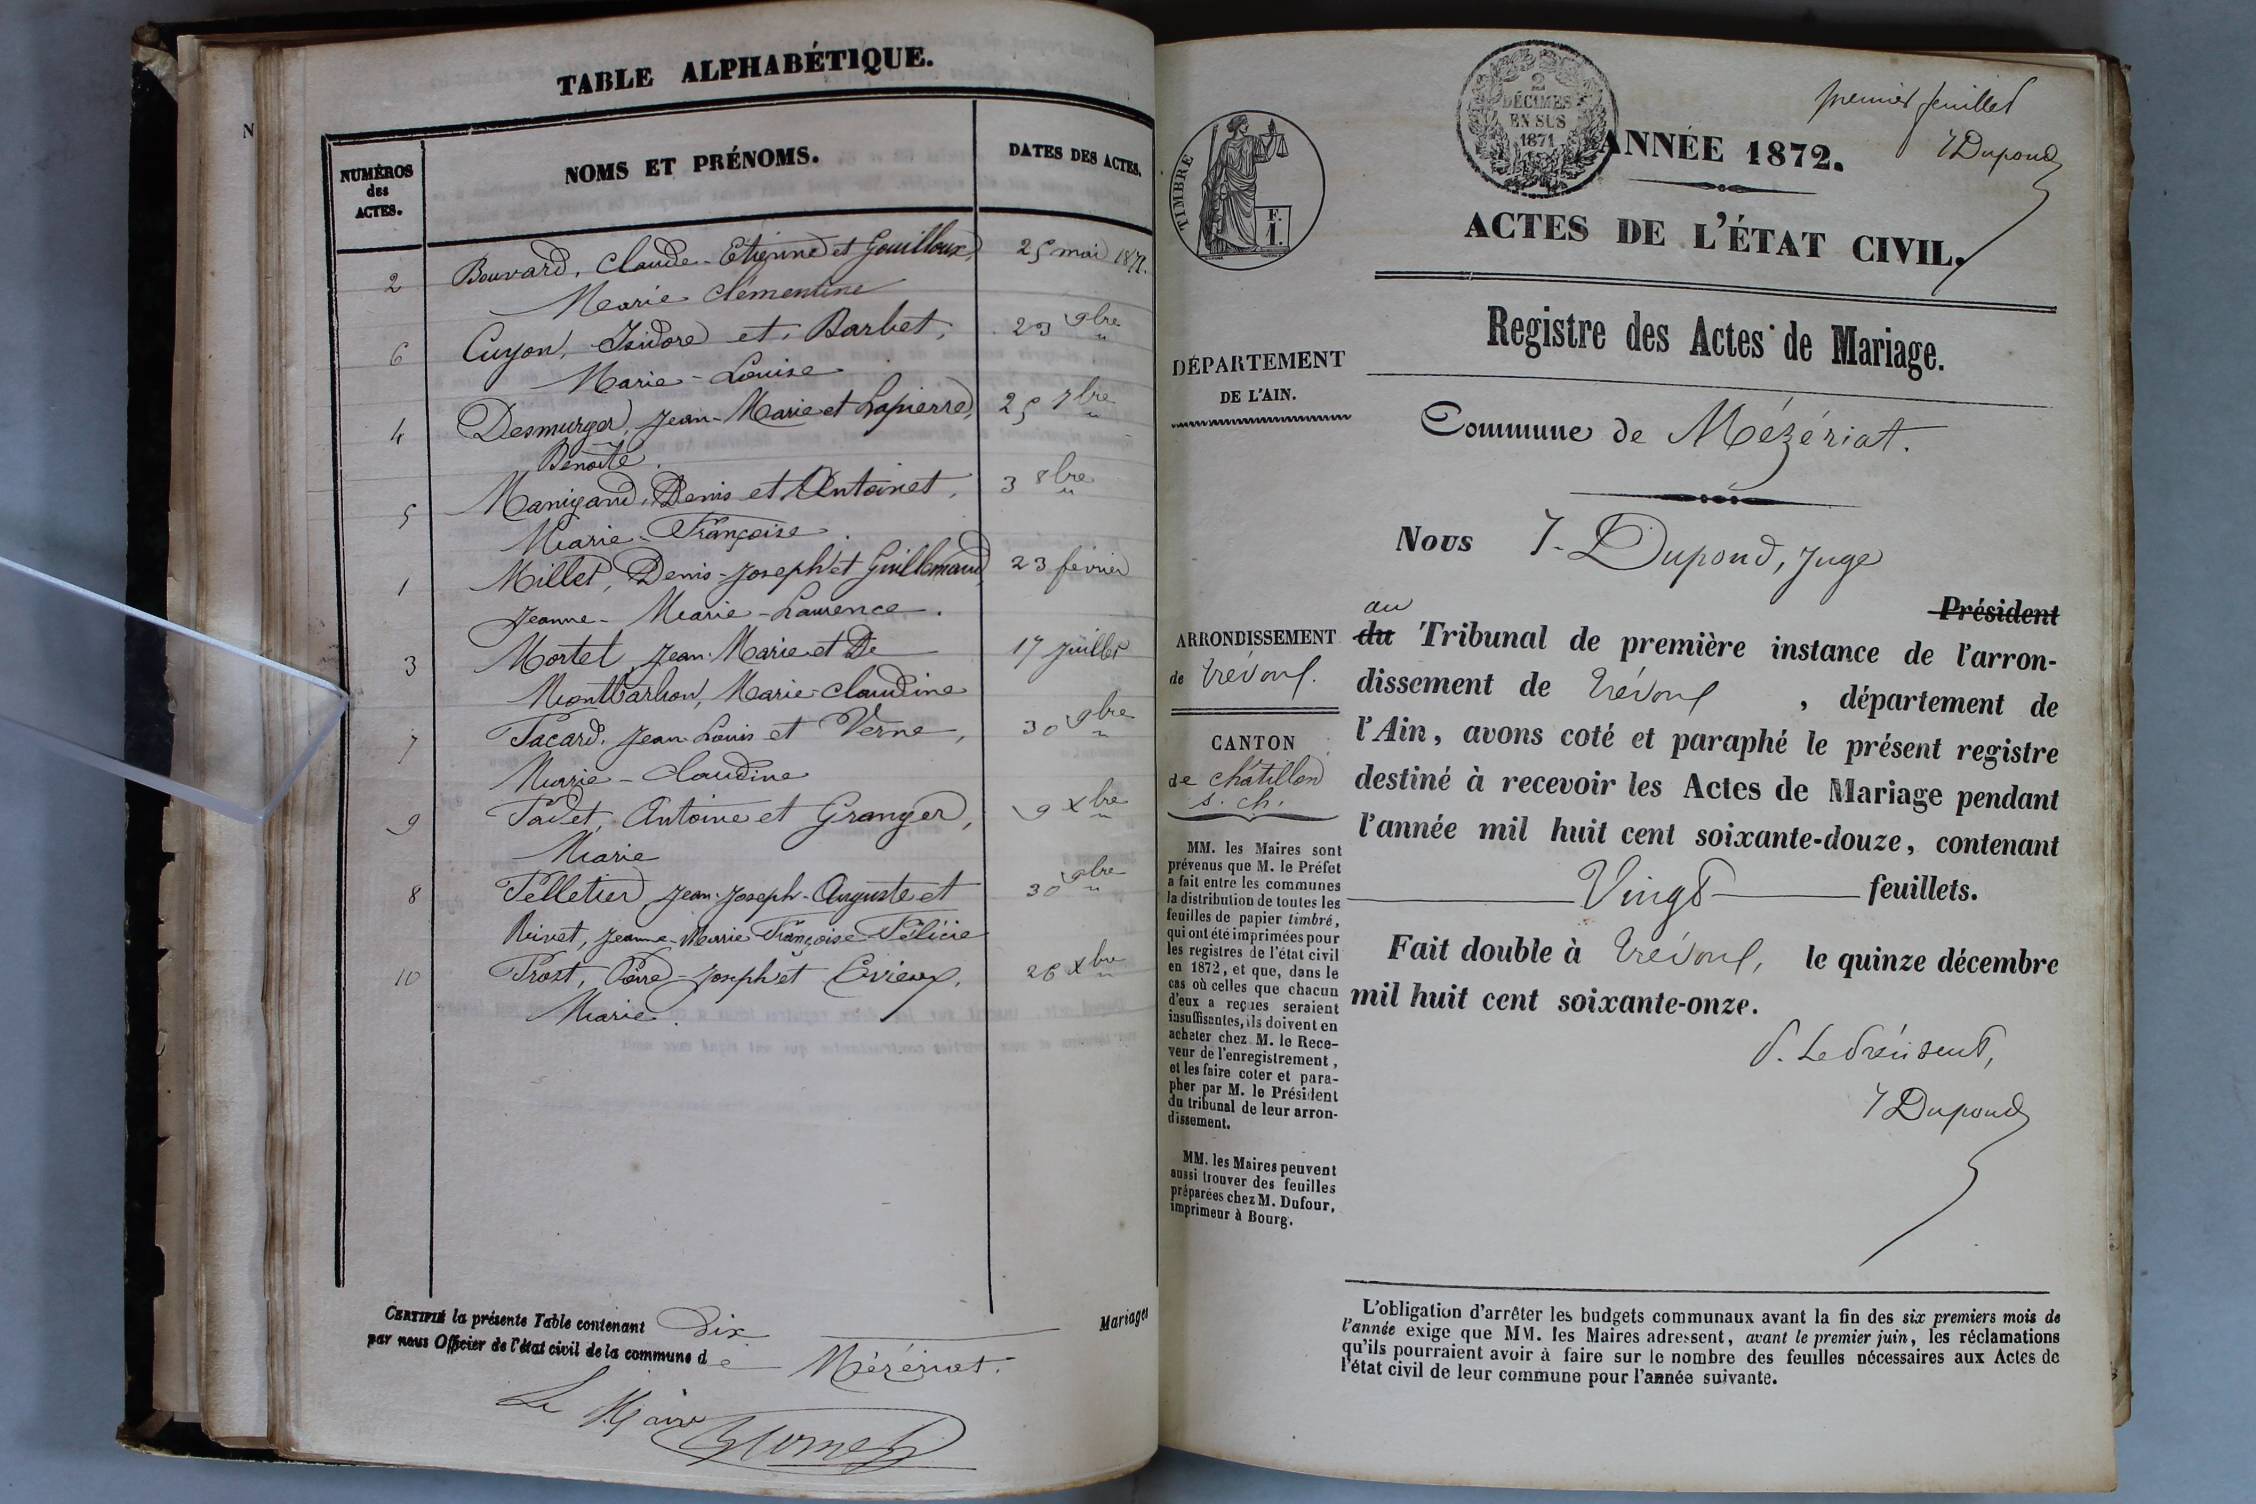 TABLE ALPHABÉTIQUE.
NUMÉROS
des
ACTES.
NOMS ET PRÉNOMS.
DATES DES ACTES.
2 Bouvard, Claude-Etienne et Gouilloux, 25 mai 1871.
Marie Clémentine
6 Guyon, Isidore et Barbet, 23 9bre
Marie-Louise
4 Desmurger, Jean-Marie et Lapierre, 25 7bre "
Benoîte.
5 Manigand, Denis et Antoinet, 3 8bre "
Marie-Françoise.
1 Millet, Denis-Joseph et Guillemaud 23 février
Jeanne-Marie-Laurence.
3 Mortel, Jean-Marie et De 17 Juillet
Montbarbon, Marie-Claudine
7 Pacard, Jean Louis et Verne, 30 9bre "
Marie-Claudine
9 Padet, Antoine et Granger, 9 Xbre "
Marie
8 Pelletier Jean-Joseph-Auguste et 30 9bre "
Rivet, Jeanne-Marie Françoise Félicie
10 Prost, Joseph et 26 Xbre "
Marie.
CERTIFIÉ la présente Table contenant Dix Mariages
par nous Officier de l'état civil de la commune de Mézériat.
Le Maire
N
TIMBRE
F.
I.
2
DÉCIMES
EN SUS
1871
premier feuillet
J Dupond
ANNÉE 1872.
ACTES DE L'ÉTAT CIVIL.
Registre des Actes de Mariage.
DÉPARTEMENT
DE L'AIN.
Commune de Mézériat.
Nous J. Dupond, Juge
Président
au
du Tribunal de première instance de l'arron-
dissement de Trévoux, département de
l'Ain, avons coté et paraphé le présent registre
destiné à recevoir les Actes de Mariage pendant
l'année mil huit cent soixante-douze, contenant
Vingt feuillets.
Fait double à Trévoux, le quinze décembre
mil huit cent soixante-onze.
P. Le Président,
J Dupond
ARRONDISSEMENT
de Trévoux.
CANTON
de Châtillon
s. ch.
MM. les Maires sont
prévenus que M. le Préfet
a fait entre les communes
la distribution de toutes les
feuilles de papier timbré,
qui ont été imprimées pour
les registres de l'état civil
en 1872, et que, dans le
cas où celles que chacun
d'eux a reçues seraient
insuffisantes, ils doivent en
acheter chez M. le Rece-
veur de l'enregistrement,
et les faire coter et para-
pher par M. le Président
du tribunal de leur arron-
dissement.
MM. les Maires peuvent
aussi trouver des feuilles
préparées chez M. Dufour,
imprimeur à Bourg.
L'obligation d'arrêter les budgets communaux avant la fin des six premiers mois de
l'année exige que MM. les Maires adressent, avant le premier juin, les réclamations
qu'ils pourraient avoir à faire sur le nombre des feuilles nécessaires aux Actes de
l'état civil de leur commune pour l'année suivante.